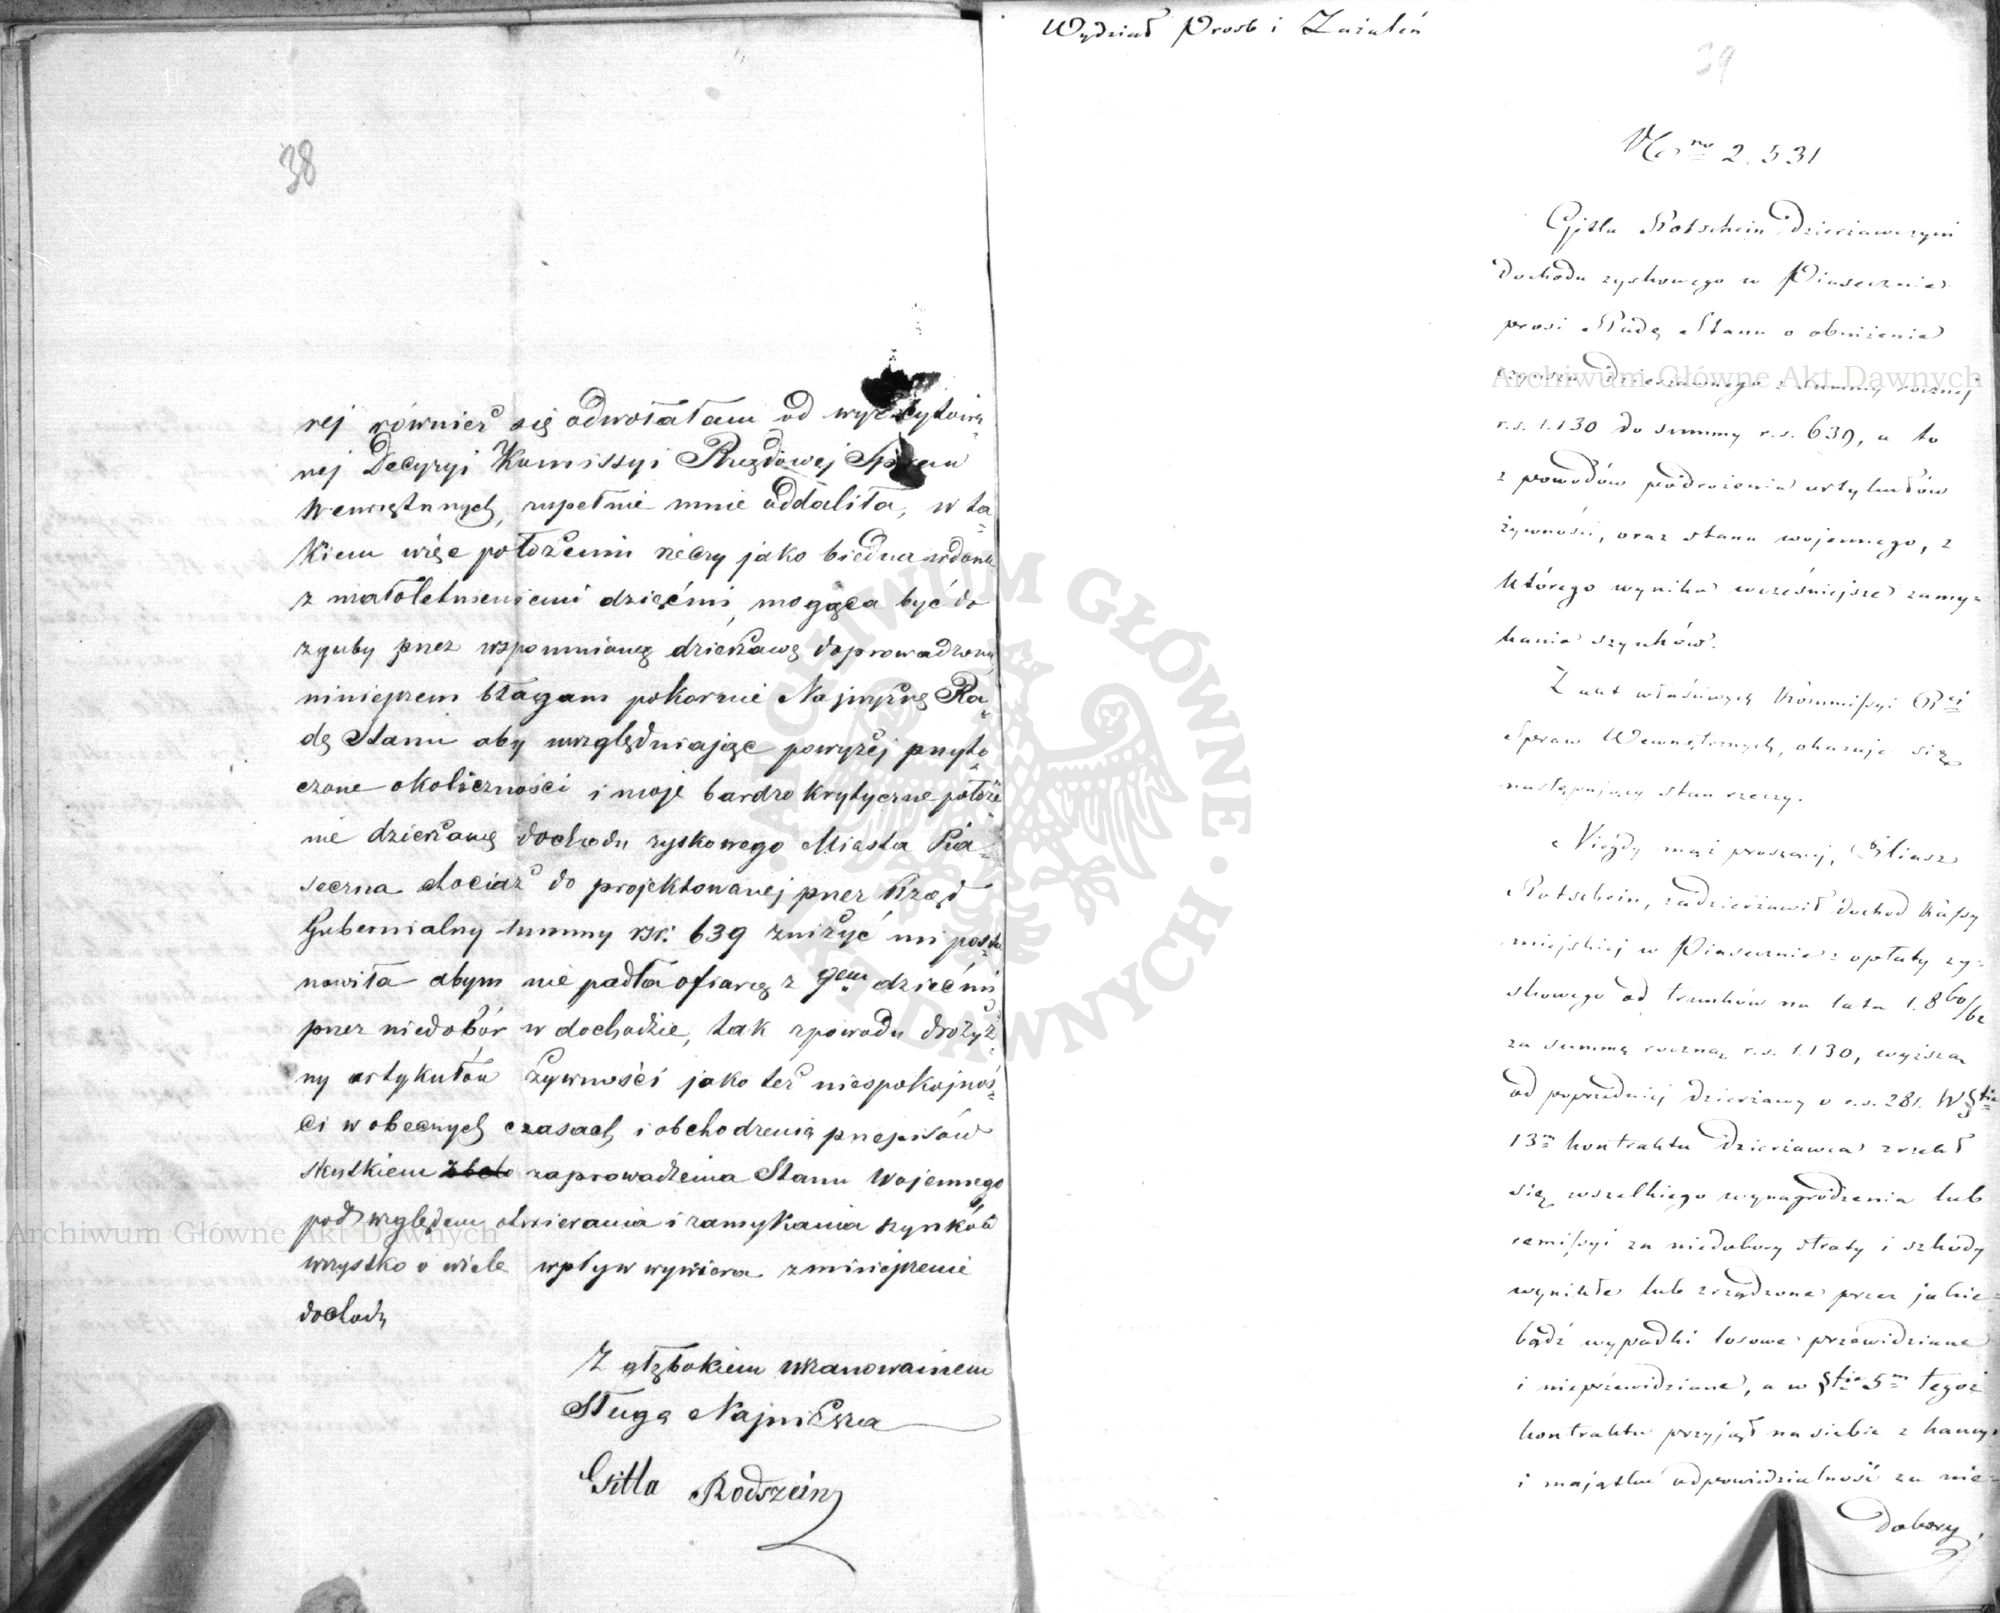 38
rej również się odwołałam od wyż cytowa
nej Decyzyi Kommissyi Rządowej Spraw
Wewnętrznych, zupełnie mnie oddaliła, w ta=
kiem więc położeniu rzeczy jako biedna wdowa
z małoletniemi dziećmi, mogąca być do
zguby przez wspomnianą dzierżawę doprowadzoną
niniejszem błagam pokornie Najwyższą Ra=
dę Stanu aby uwzględniając powyżej przyto
czone okoliczności i moje bardzo krytyczne położe
nie dzierżawę dochodu zyskowego Miasta Pia=
seczna chociaż do projektowanej przez Rząd
Gubernialny summy rsr. 639 zniżyć mi posta
nowiła abym nie padła ofiarą z 9em dziećmi
przez niedobór w dochodzie, tak z powodu drożyz=
ny artykułów żywności jako też niespokojnoś=
ci w obecnych czasach i obchodzenia przepisów
skutkiem zaprowadzenia Stanu Wojennego
pod względem otwierania i zamykania szynków
wszystko o wiele wpływ wywiera zmniejszenie
dochodu
Z głębokiem uszanowaniem
Sługa Najniższa
Gitla Rodszein
Wydział Prosb i Zażaleń
39
No 2.531
Gitla Rotschein Dzierżawczyni
dochodu zyskowego w Piasecznie
prosi Radę Stanu o obniżenie
czynszu dzierżawnego z summy rocznej
r.s. 1.130 do summy r.s. 639, a to
z powodów podrożenia artykułów
żywności, oraz stanu wojennego, z
którego wynika wcześniejsze zamy=
kanie szynków.
Z akt właściwych Kommissyi Rei
Spraw Wewnętrznych, okazuje się
następujący stan rzeczy.
Niegdy mąż proszącej, Eliasz
Rotschein, zadzierżawił dochod Kassy
miejskiej w Piasecznie z opłaty zy=
skowego od trunków na lata 1.860/62
za summę roczną r.s. 1.130, wyższą
od poprzedniej dzierżawy o r.s. 281. W §fie
13m kontraktu Dzierżawca zrzekł
się wszelkiego wynagrodzenia lub
remissyi za niedobory straty i szkody
wynikłe lub zrządzone przez jakie=
bądź wypadki losowe przewidziane
i nieprzewidziane, a w §fie 5m tegoż
kontraktu przyjął na siebie z kaucyi
i majątku odpowiedzialność za nie=
dobory,
Archiwum Główne Akt Dawnych
Archiwum Główne Akt Dawnych
ARCHIWUM GŁÓWNE AKT DAWNYCH